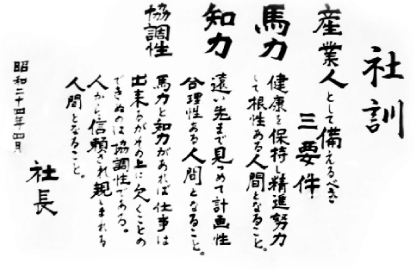 社訓
産業人として備えるべき
三要件
馬力
健康を保持し精進努力
して根性ある人間となること。
知力
遠い先まで見つめて計画性
合理性ある人間となること。
協調性
馬力と知力があれば仕事は
出来るがその上に欠くことの
できぬのは協調性である。
人から信頼され親しまれる
人間となること。
昭和二十四年四月
社長